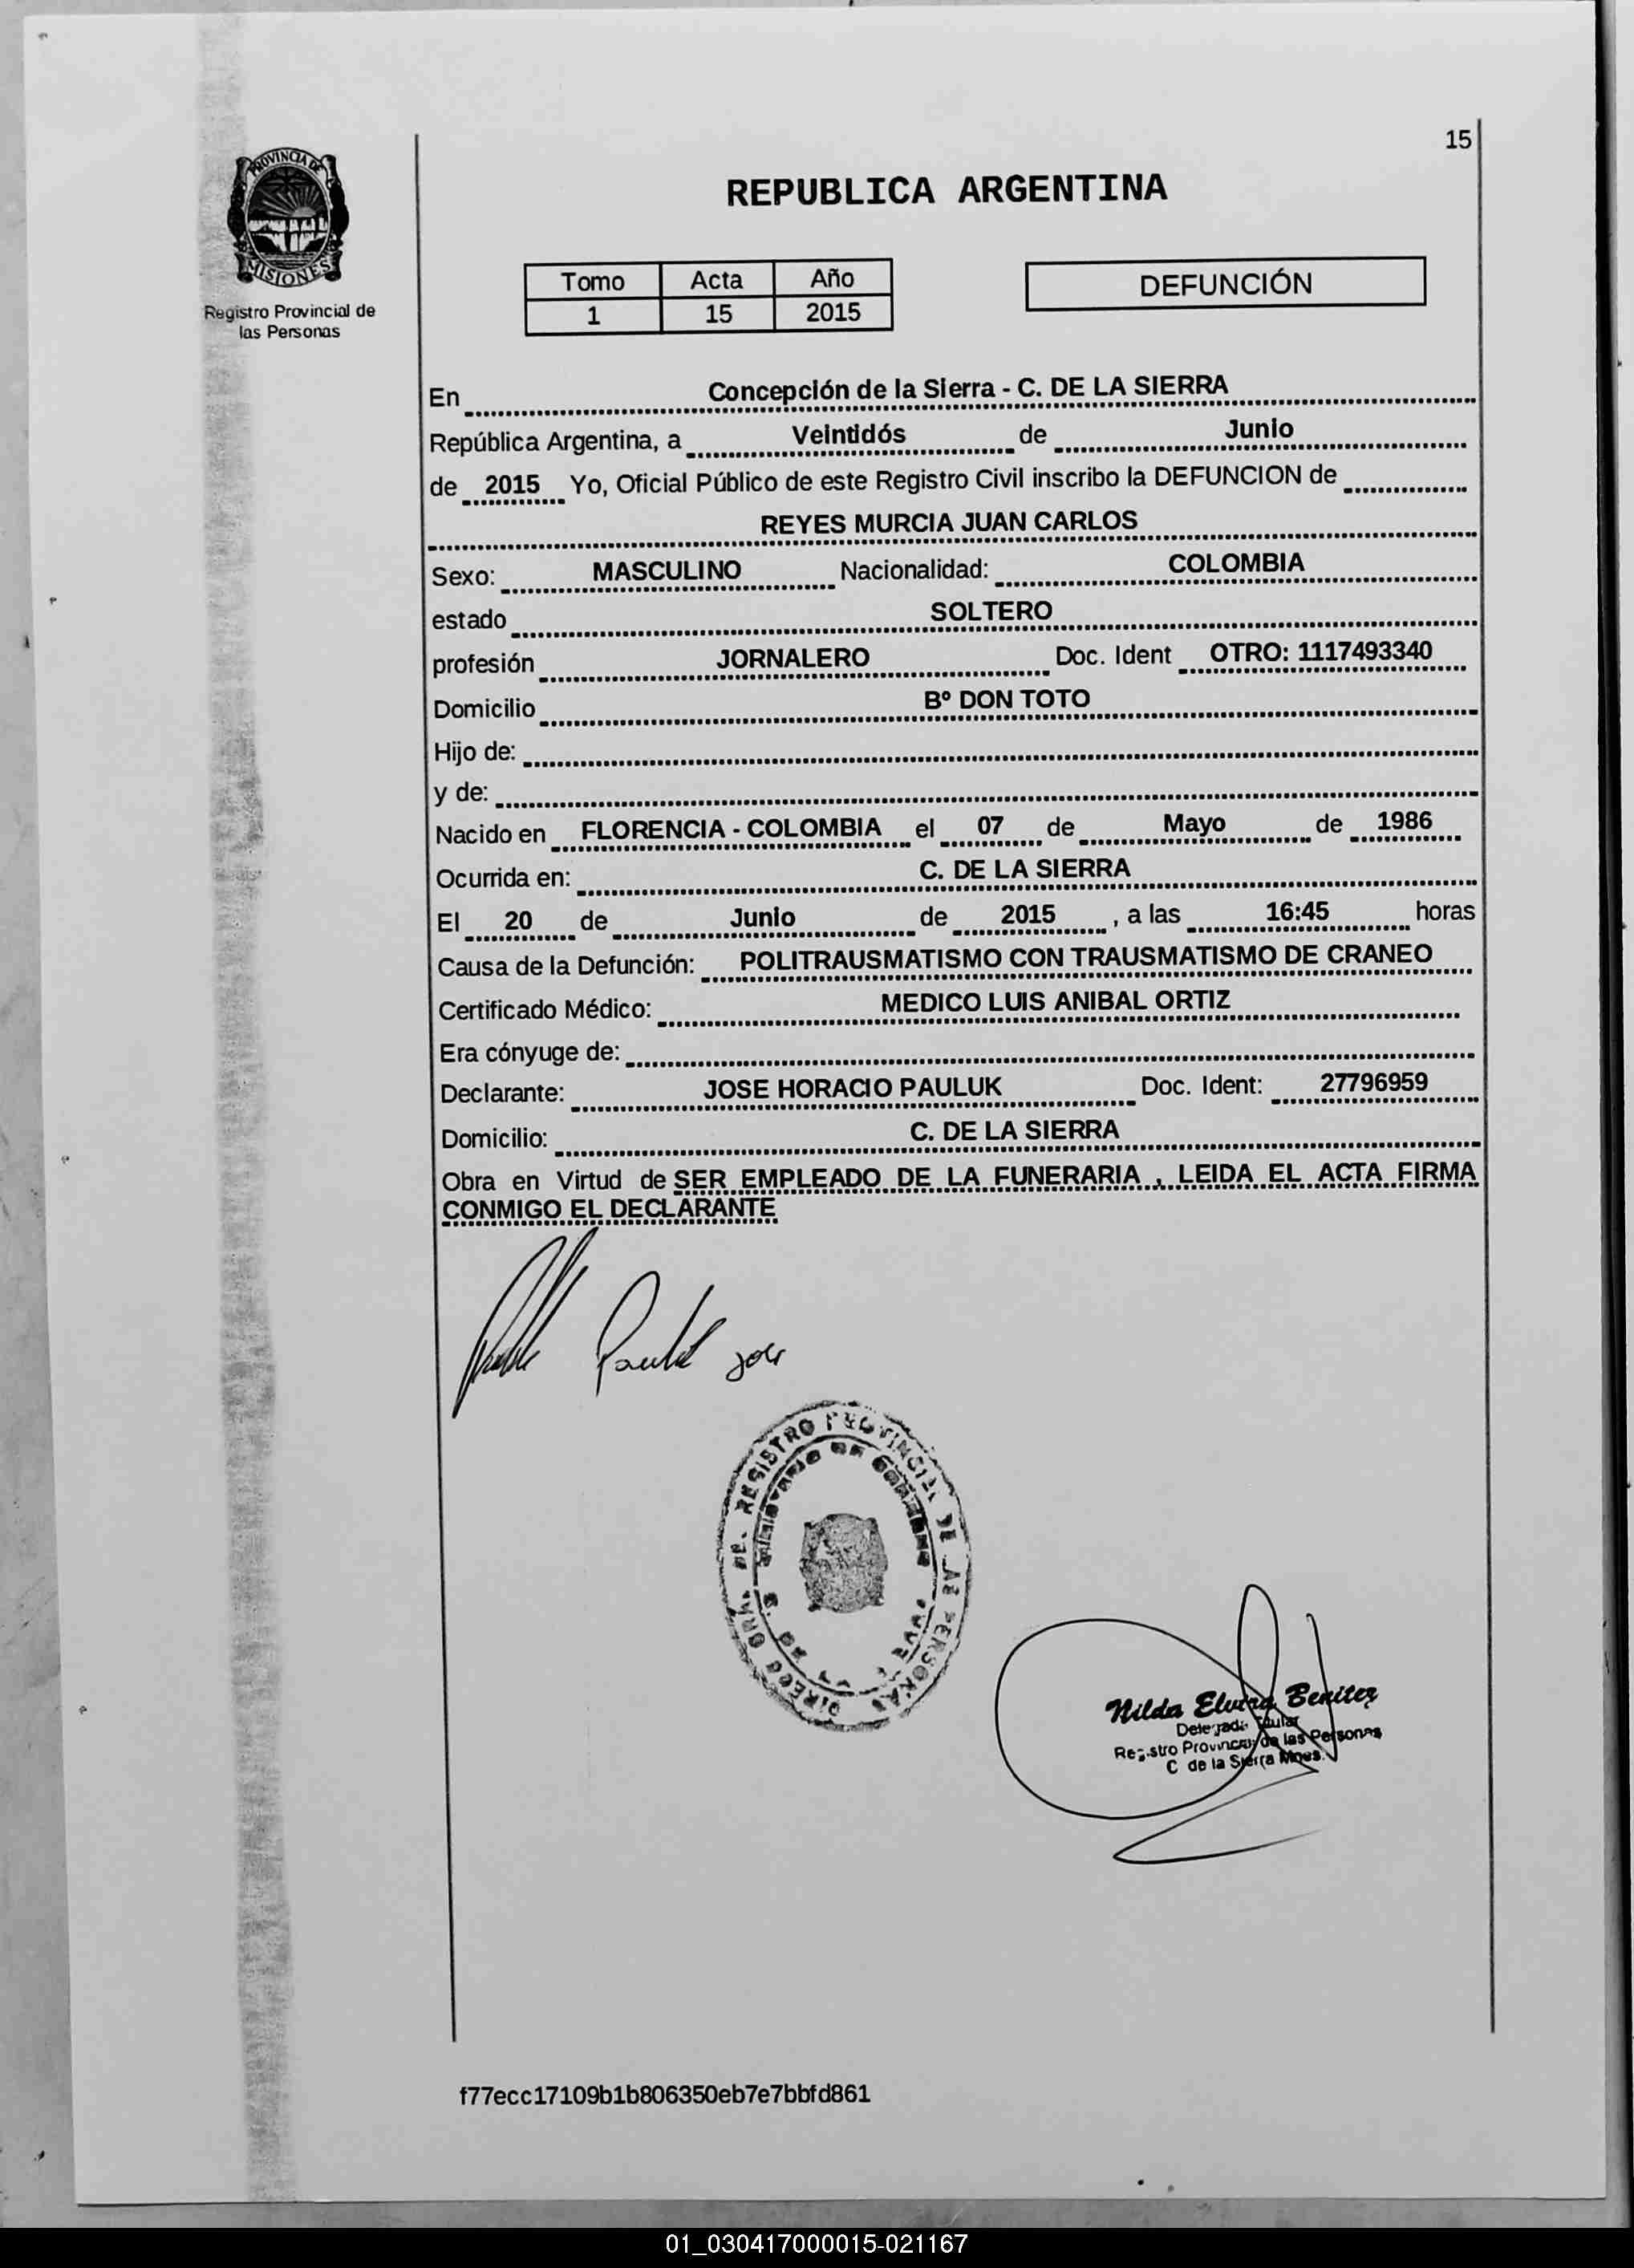 15
PROVINCIA DE
MISIONES
Registro Provincial de
las Personas
REPUBLICA ARGENTINA
Tomo Acta Año
1 15 2015
DEFUNCIÓN
En Concepción de la Sierra - C. DE LA SIERRA
República Argentina, a Veintidós de Junio
de 2015 Yo, Oficial Público de este Registro Civil inscribo la DEFUNCION de
REYES MURCIA JUAN CARLOS
Sexo: MASCULINO Nacionalidad: COLOMBIA
estado SOLTERO
profesión JORNALERO Doc. Ident OTRO: 1117493340
Domicilio Bº DON TOTO
Hijo de:
y de:
Nacido en FLORENCIA - COLOMBIA el 07 de Mayo de 1986
Ocurrida en: C. DE LA SIERRA
El 20 de Junio de 2015 , a las 16:45 horas
Causa de la Defunción: POLITRAUSMATISMO CON TRAUSMATISMO DE CRANEO
Certificado Médico: MEDICO LUIS ANIBAL ORTIZ
Era cónyuge de:
Declarante: JOSE HORACIO PAULUK Doc. Ident: 27796959
Domicilio: C. DE LA SIERRA
Obra en Virtud de SER EMPLEADO DE LA FUNERARIA , LEIDA EL ACTA FIRMA
CONMIGO EL DECLARANTE
REGISTRO PROVINCIAL DE LAS PERSONAS
Nilda Elvira Benitez
Delegada Titular
Registro Provincial de las Personas
C de la Sierra Mnes.
f77ecc17109b1b806350eb7e7bbfd861
01_030417000015-021167